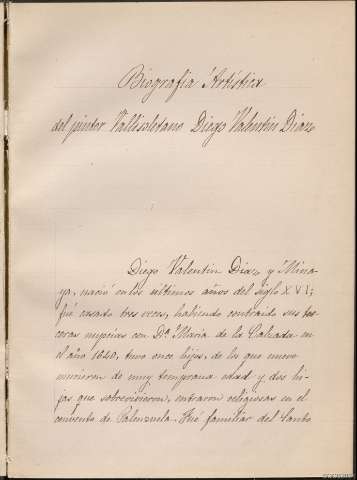 Biografia Artística
del pintor Vallisoletano Diego Valentin Diaz
Diego Valentin Diaz y Mina-
ya, nació en los ultimos años del siglo XVI;
fué casado tres veces, habiendo contraido sus ter-
ceras nupcias con Dª Maria de la Calzada en
el año 1640, tuvo once hijos, de los que nueve
murieron de muy temprana edad y dos hi-
jas que sobrevivieron, entraron religiosas en el
convento de Palenzuela. Fué familiar del Santo